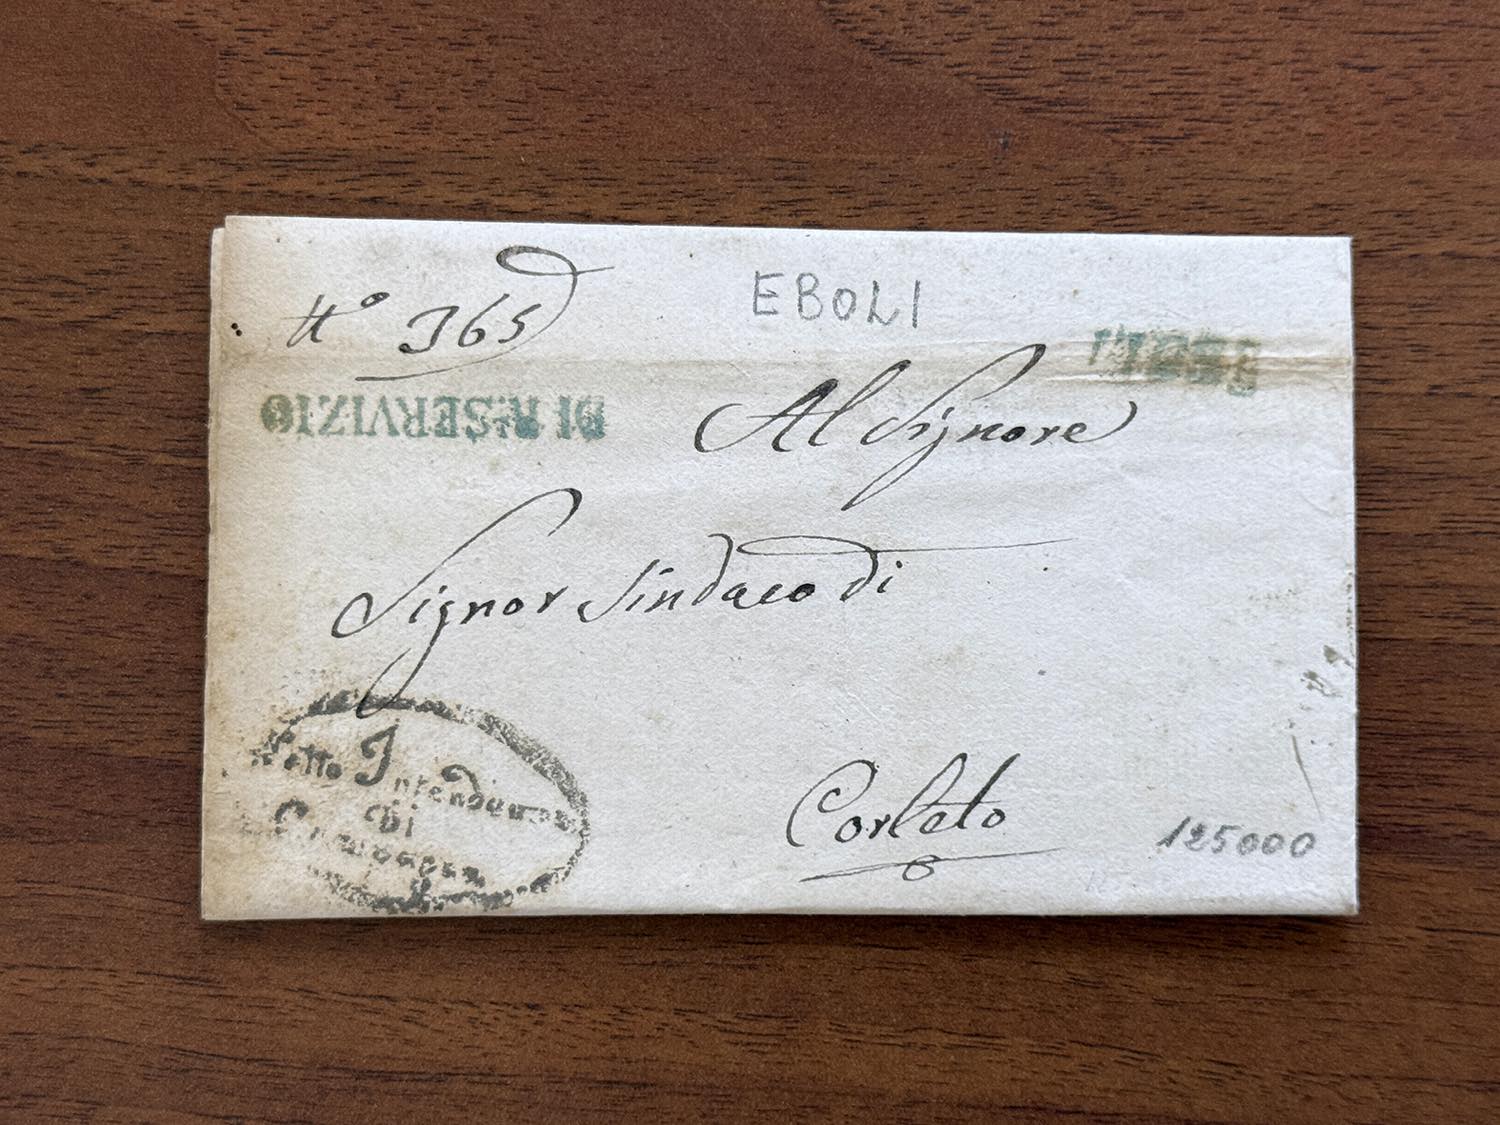 N.º 365
EBOLI
EBOLI
DI Rˡ SERVIZIO
Al Signore
Signor Sindaco di
Sotto Intendenza
di
Campagna
Corleto
125000